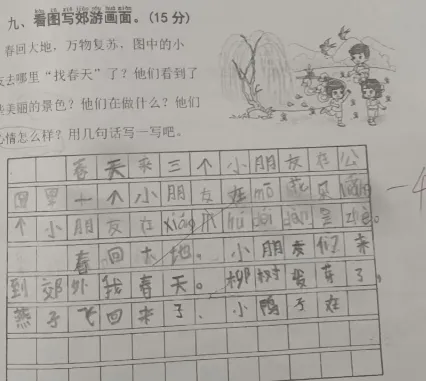 九、看图写郊游画面。(15分)
春回大地，万物复苏，图中的小
友去哪里“找春天”了？他们看到了
些美丽的景色？他们在做什么？他们
心情怎么样？用几句话写一写吧。
春天来三个小朋友在公
园里一个小朋友在mō
个小朋友在xiáng
春回大地。小朋友们来
到郊外找春天。柳树发芽了，
燕子飞回来了，小鸭子在